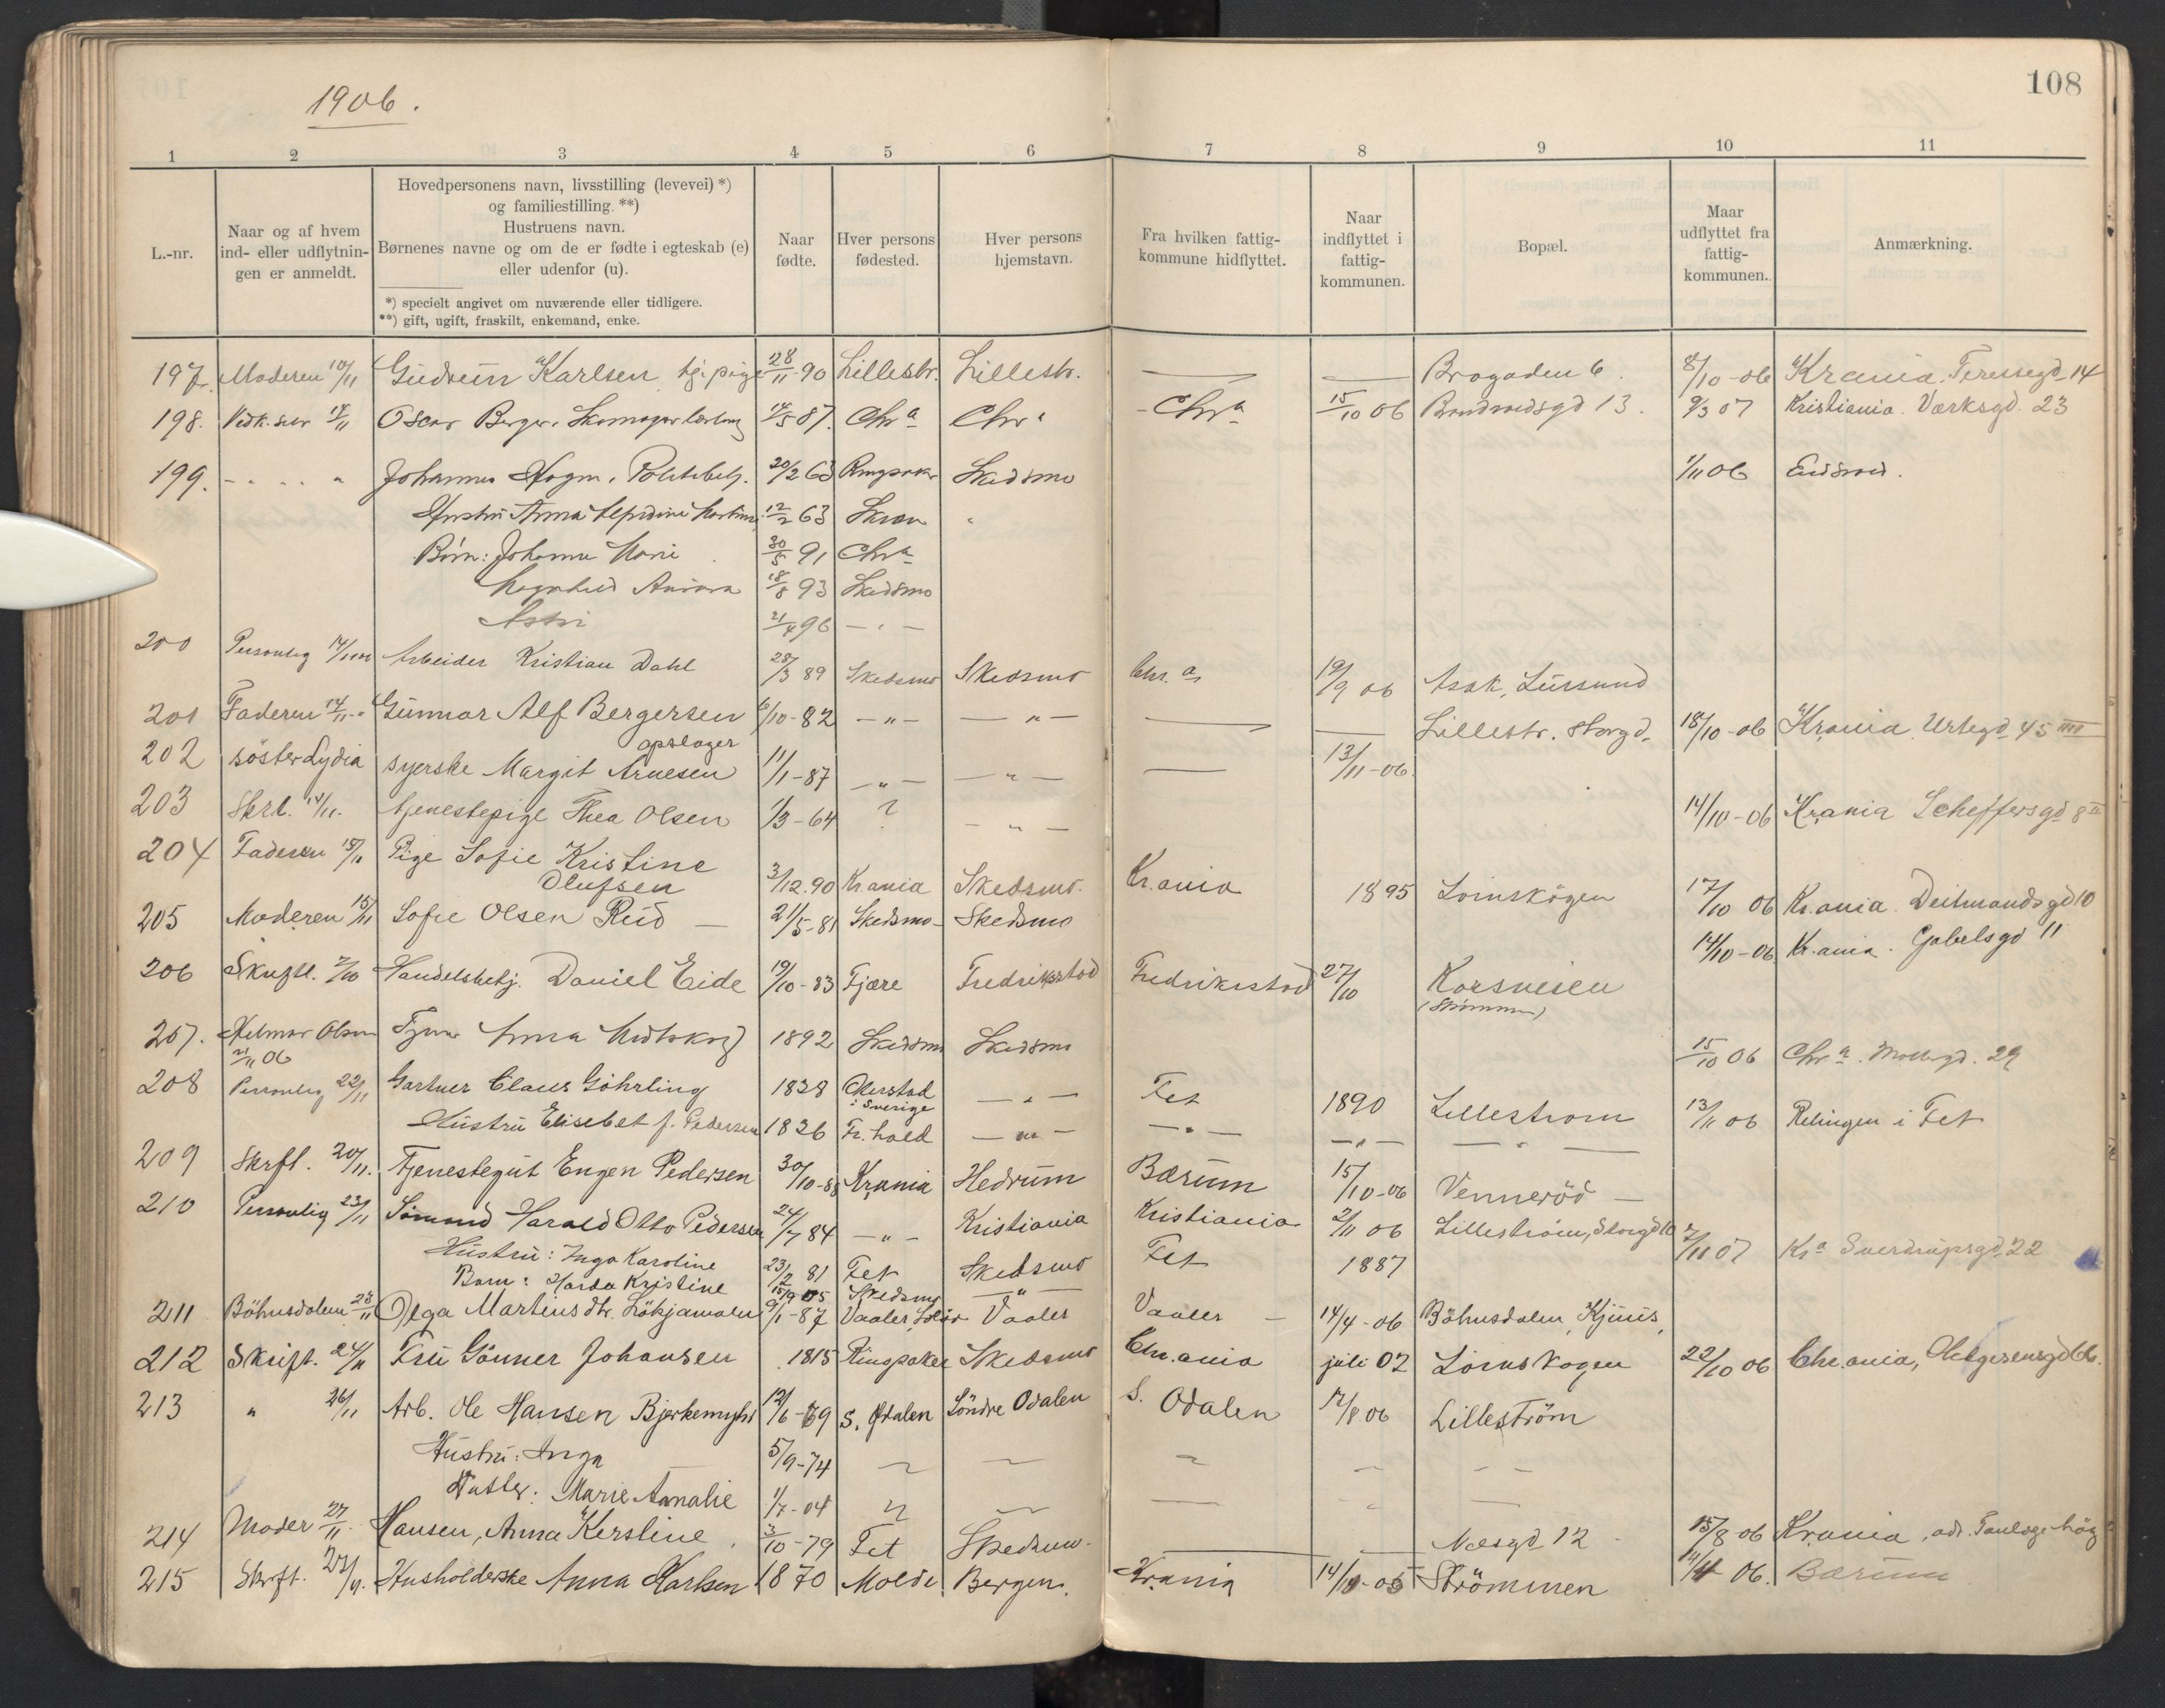 1906.
108
1 2 3 4 5 6 7 8 9 10 11
L.-nr.
Naar og af hvem
ind- eller udflytnin-
gen er anmeldt.
Hovedpersonens navn, livsstilling (levevei) *)
og familiestilling. **)
Hustruens navn.
Børnenes navne og om de er fødte i egteskab (e)
eller udenfor (u).
*) specielt angivet om nuværende eller tidligere.
**) gift, ugift, fraskilt, enkemand, enke.
Naar
fødte.
Hver persons
fødested.
Hver persons
hjemstavn.
Fra hvilken fattig-
kommune hidflyttet.
Naar
indflyttet i
fattig-
kommunen.
Bopæl.
Maar
udflyttet fra
fattig-
kommunen.
Anmærkning.
197. Moderen 10/11 Gudrun Karlsen tj. pige 28/11-90 Lillestr. Lillestr. — — Brogaden 6 8/10-06 Krania. Teressegd. 14
198. Vedk. selv 14/11 Oscar Berger. Skomagerlærling 14/5 87. Chr a Chr a Chr a 15/10 06 13. 9/3 07 Kristiania. Værksgd. 23
199. - " " " Johannes 20/2 63 Ringsaker Skedsmo 1/11 06 Eidsvold.
Hustru Anna 12/2 63 "
Børn: Johanna Marie 30/5 91 Chr a
Aurora 18/8 93 Skedsmo
Astri 21/4 96 - " -
200 Personlig 14/11 Arbeider Kristian Dahl 28/3 89 Skedsmo Skedsmo Chr. a. 19/9 06 Asak,
201 Faderen 14/11 Gunnar Alf Bergersen 6/10-82 - " - - " - — — Lillestr. Storgd. 18/10-06 Krania Urtegd. 45 IIII
opslager
202 söster Lydia syerske Margit Arnesen 11/1-87 - " - - " - — 13/11-06.
203 Skrl. 14/11. tjenestepige Thea Olsen 1/3-64 ? - " - 14/10-06 Krania Scheffersgd 8 II
204 Faderen 15/11 Pige Sofie Kristine
Olufsen 3/12.90 Krania Skedsmo. Kr.ania 1895 Lørnskogen 17/10 06 Kr.ania. Deitmandsgd 10
205 Moderen 15/11 Sofie Olsen Rud — 21/5-81 Skedsmo - Skedsmo 14/10-06 Kr.ania. Gabelsgd 11
206 Skriftl. 7/10 Handelsbetj. Daniel Eide 19/10-83 Fjære Fredrikstad Fredrikstad 27/10 Korsveien
(Strømmen)
207. Helmer Olsen Anna 1892 Skedsmo Skedsmo 15/10 06 Chr a. Mollergd. 29
21/11 06
208 Personlig 22/11 Gartner Claus Göhrling 1828 - " - Fet 1890 Lillestrøm 13/11 06 Relingen i Fet
i Sverige
Hustru Elisebet f. Pedersen 1826 Fr.hald - " - - " - - " - - " -
209 Skrftl. 20/11. Tjenestegut Engen Pedersen 30/10-88 Krania Hedrum Bærum 15/10-06 Venneröd —
210 Personlig 23/11 Sömand Harald Otto Pedersen 24/7 84 - " - Kristiania Kristiania 2/11 06 Lillestrøm, Storgd 10 2/11 07 Kr a Sverdrupsgd. 22
Hustru: Inga Karoline 23/2 81 Fet Skedsmo Fet 1887
Barn: Harda Kristine 15/9 05 Skedsmo - " -
211 Böhnsdalen 23/11 Olga Martinsdtr. 9/1-87 Vaaler, Solör Vaaler Vaaler — 14/4-06 Böhnsdalen,
212 Skrift. 24/11 Fru Gönner Johansen 1815 Ringsaker Skedsmo Chr.ania juli 02 Lørnskogen 22/10 06 Chr.ania,
213 " 26/11 Arb. Ole Hansen Bjerkemyhr 12/6-79 S. Odalen Söndre Odalen S. Odalen 12/8.06 Lilleström
Hustru: Inga 5/9-74 — — — — —
Datter: Marie Amalie 1/7-04 " — — — —
214 Moder 27/11 Hansen, Anna Kerstine 3/10-79 Fet Skedsmo. — — Næsgd 12 15/8 06 Krania,
215 Skrft. 27/11. Husholderske Anna Karlsen 1870 Molde Bergen. Krania 14/10-05 Strömmen 06. Bærum